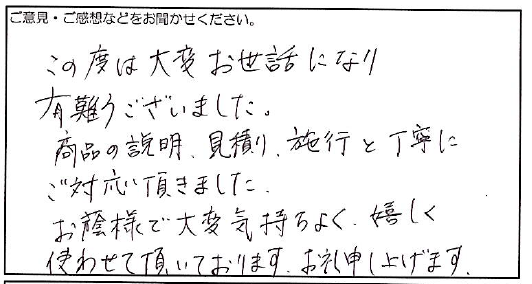 ご意見・ご感想などをお聞かせください。
この度は大変お世話になり
有難うございました。
商品の説明、見積り、施行と丁寧に
ご対応頂きました。
お蔭様で大変気持ちよく、嬉しく
使わせて頂いております。お礼申し上げます。